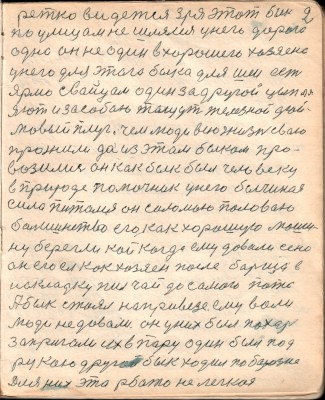 2
ретко видется зря этот бык
по улицам не шлялся у него дорога
одна он не один в хорошего хозяена
у него для этого быка для шеи ест
ярмо свайцам один за другой цыпля
яют и за собою тащут железной дюй-
мовый плуг, чем люди в
прожили да из этам быком про-
возилис он как бык был чело веку
в природе помочник у него бычиная
сила питался он соломою половаю
бальшинство его как хорошую маши-
ну берегли кой когда ему давали сено
он его ел как хозяен после барща в
накладку пил чай до самого пота
А бык стоял на привязе ему воли
люди недовали. он у них был пахар
запригали их в пару один был под
рукаю другой бык ходил по барозне
для них эта рбато не легкая